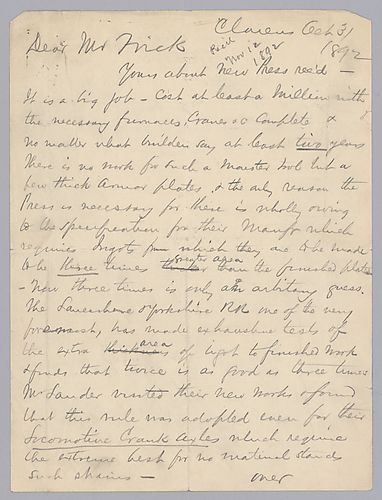 Clarens Oct 31
1892
Dear Mr Frick
Recd
Nov 12
1892
Yours about New Press rec'd —
It is a big job – Cost at least a Million with
the necessary furnaces, Cranes &c Complete &
no matter what builders say at least two years
There is no work for such a Monster tool but a
few thick Armor plates, & the only reason the
Press is necessary for these is wholly owing
to the specification for their Manfr which
requires Ingots from which they are to be made
to be three times greater area than the finished plate
– Now three times is only an arbitrary guess.
The Lancashire & Yorkshire RR one of the very
foremost, has made exhaustive tests of
the extra area of ingot to finished work
& finds that twice is as good as three times
Mr Lauder visited their new Works & found
that this rule was adopted even for their
Locomotive Crank Axles which require
the extreme best for no material stands
such strains —
over